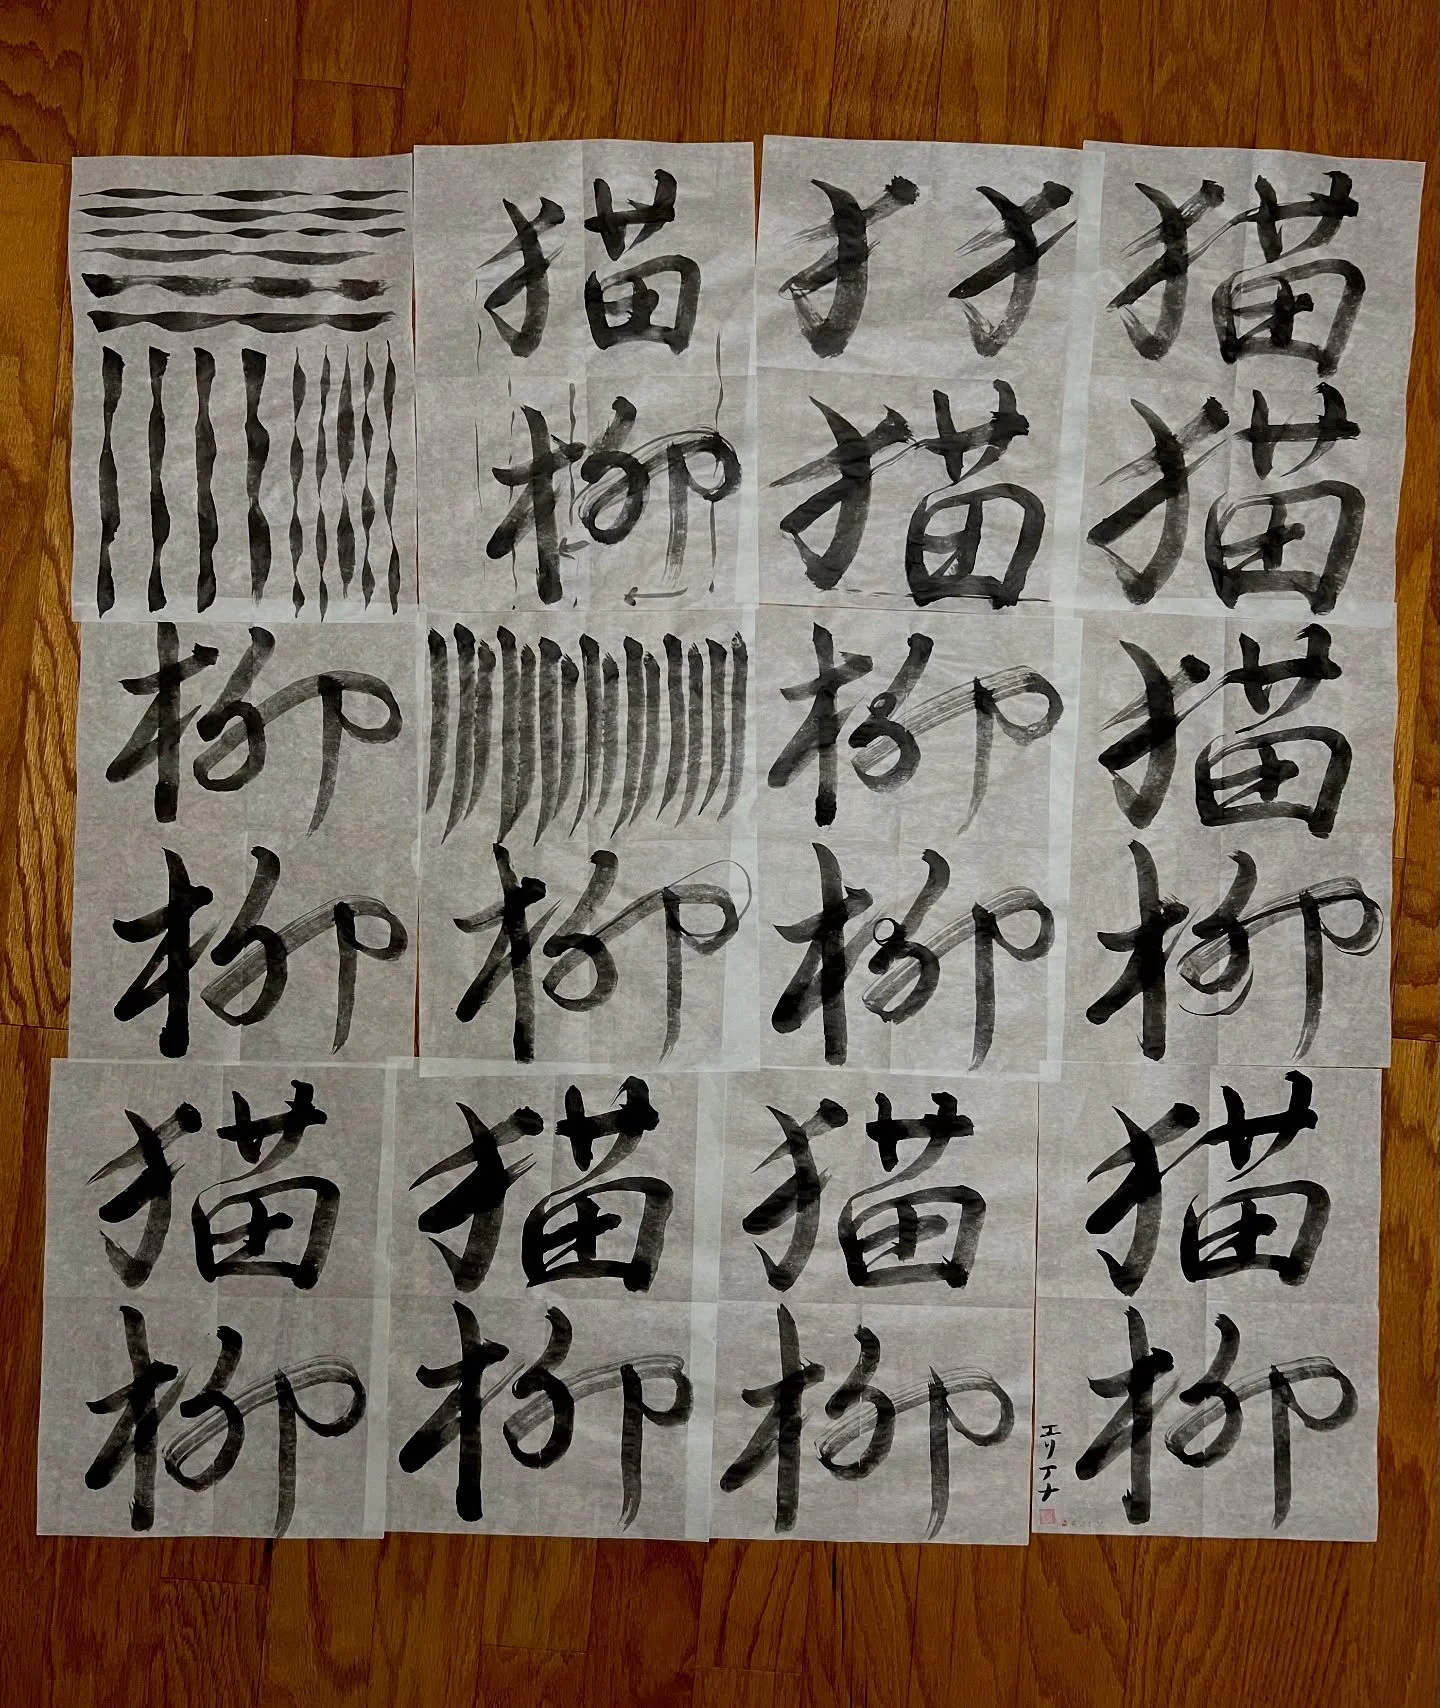 猫
柳
犭犭
猫
猫
猫
柳
柳
柳
柳
柳
猫
柳
猫
柳
猫
柳
猫
柳
猫
柳
エリアナ